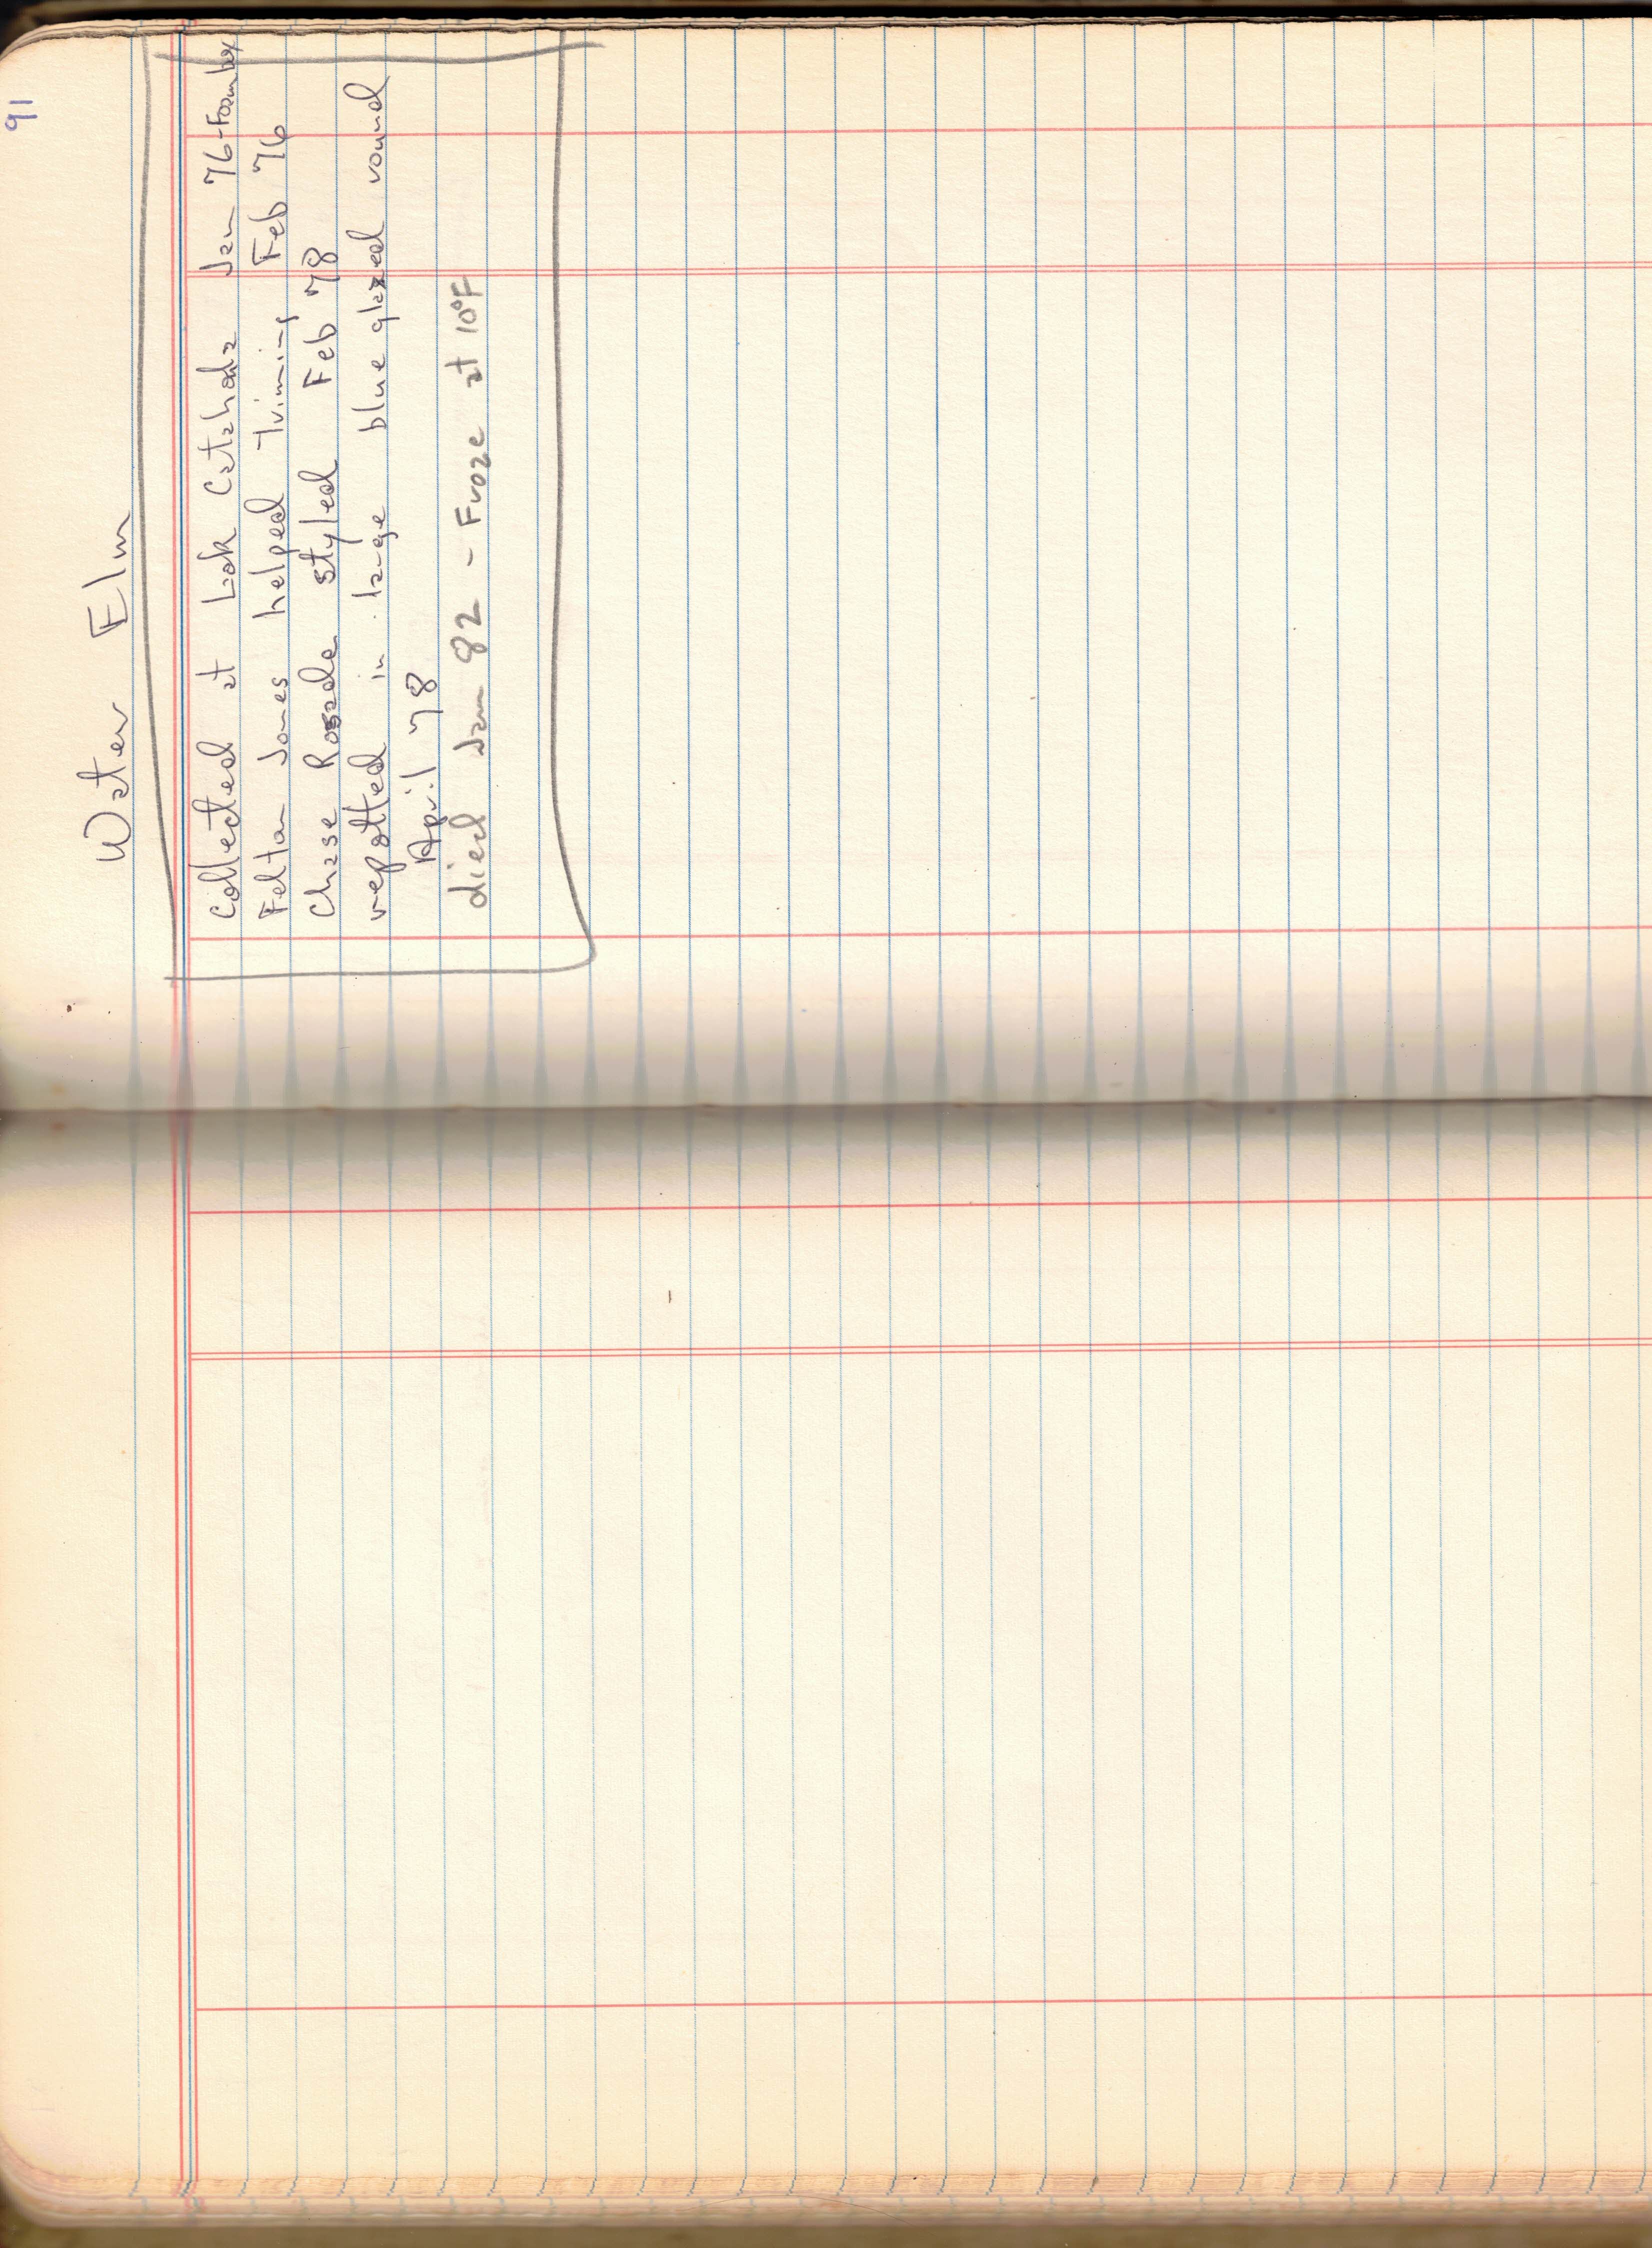 91
Water Elm
Collected at Lak Catahoula Jan 76-Foam box
Felton Jones helped Triming Feb 76
Chase Rosade styled Feb 78
repotted in large blue glazed round
April 78
died Jan 82 - Froze at 10°F